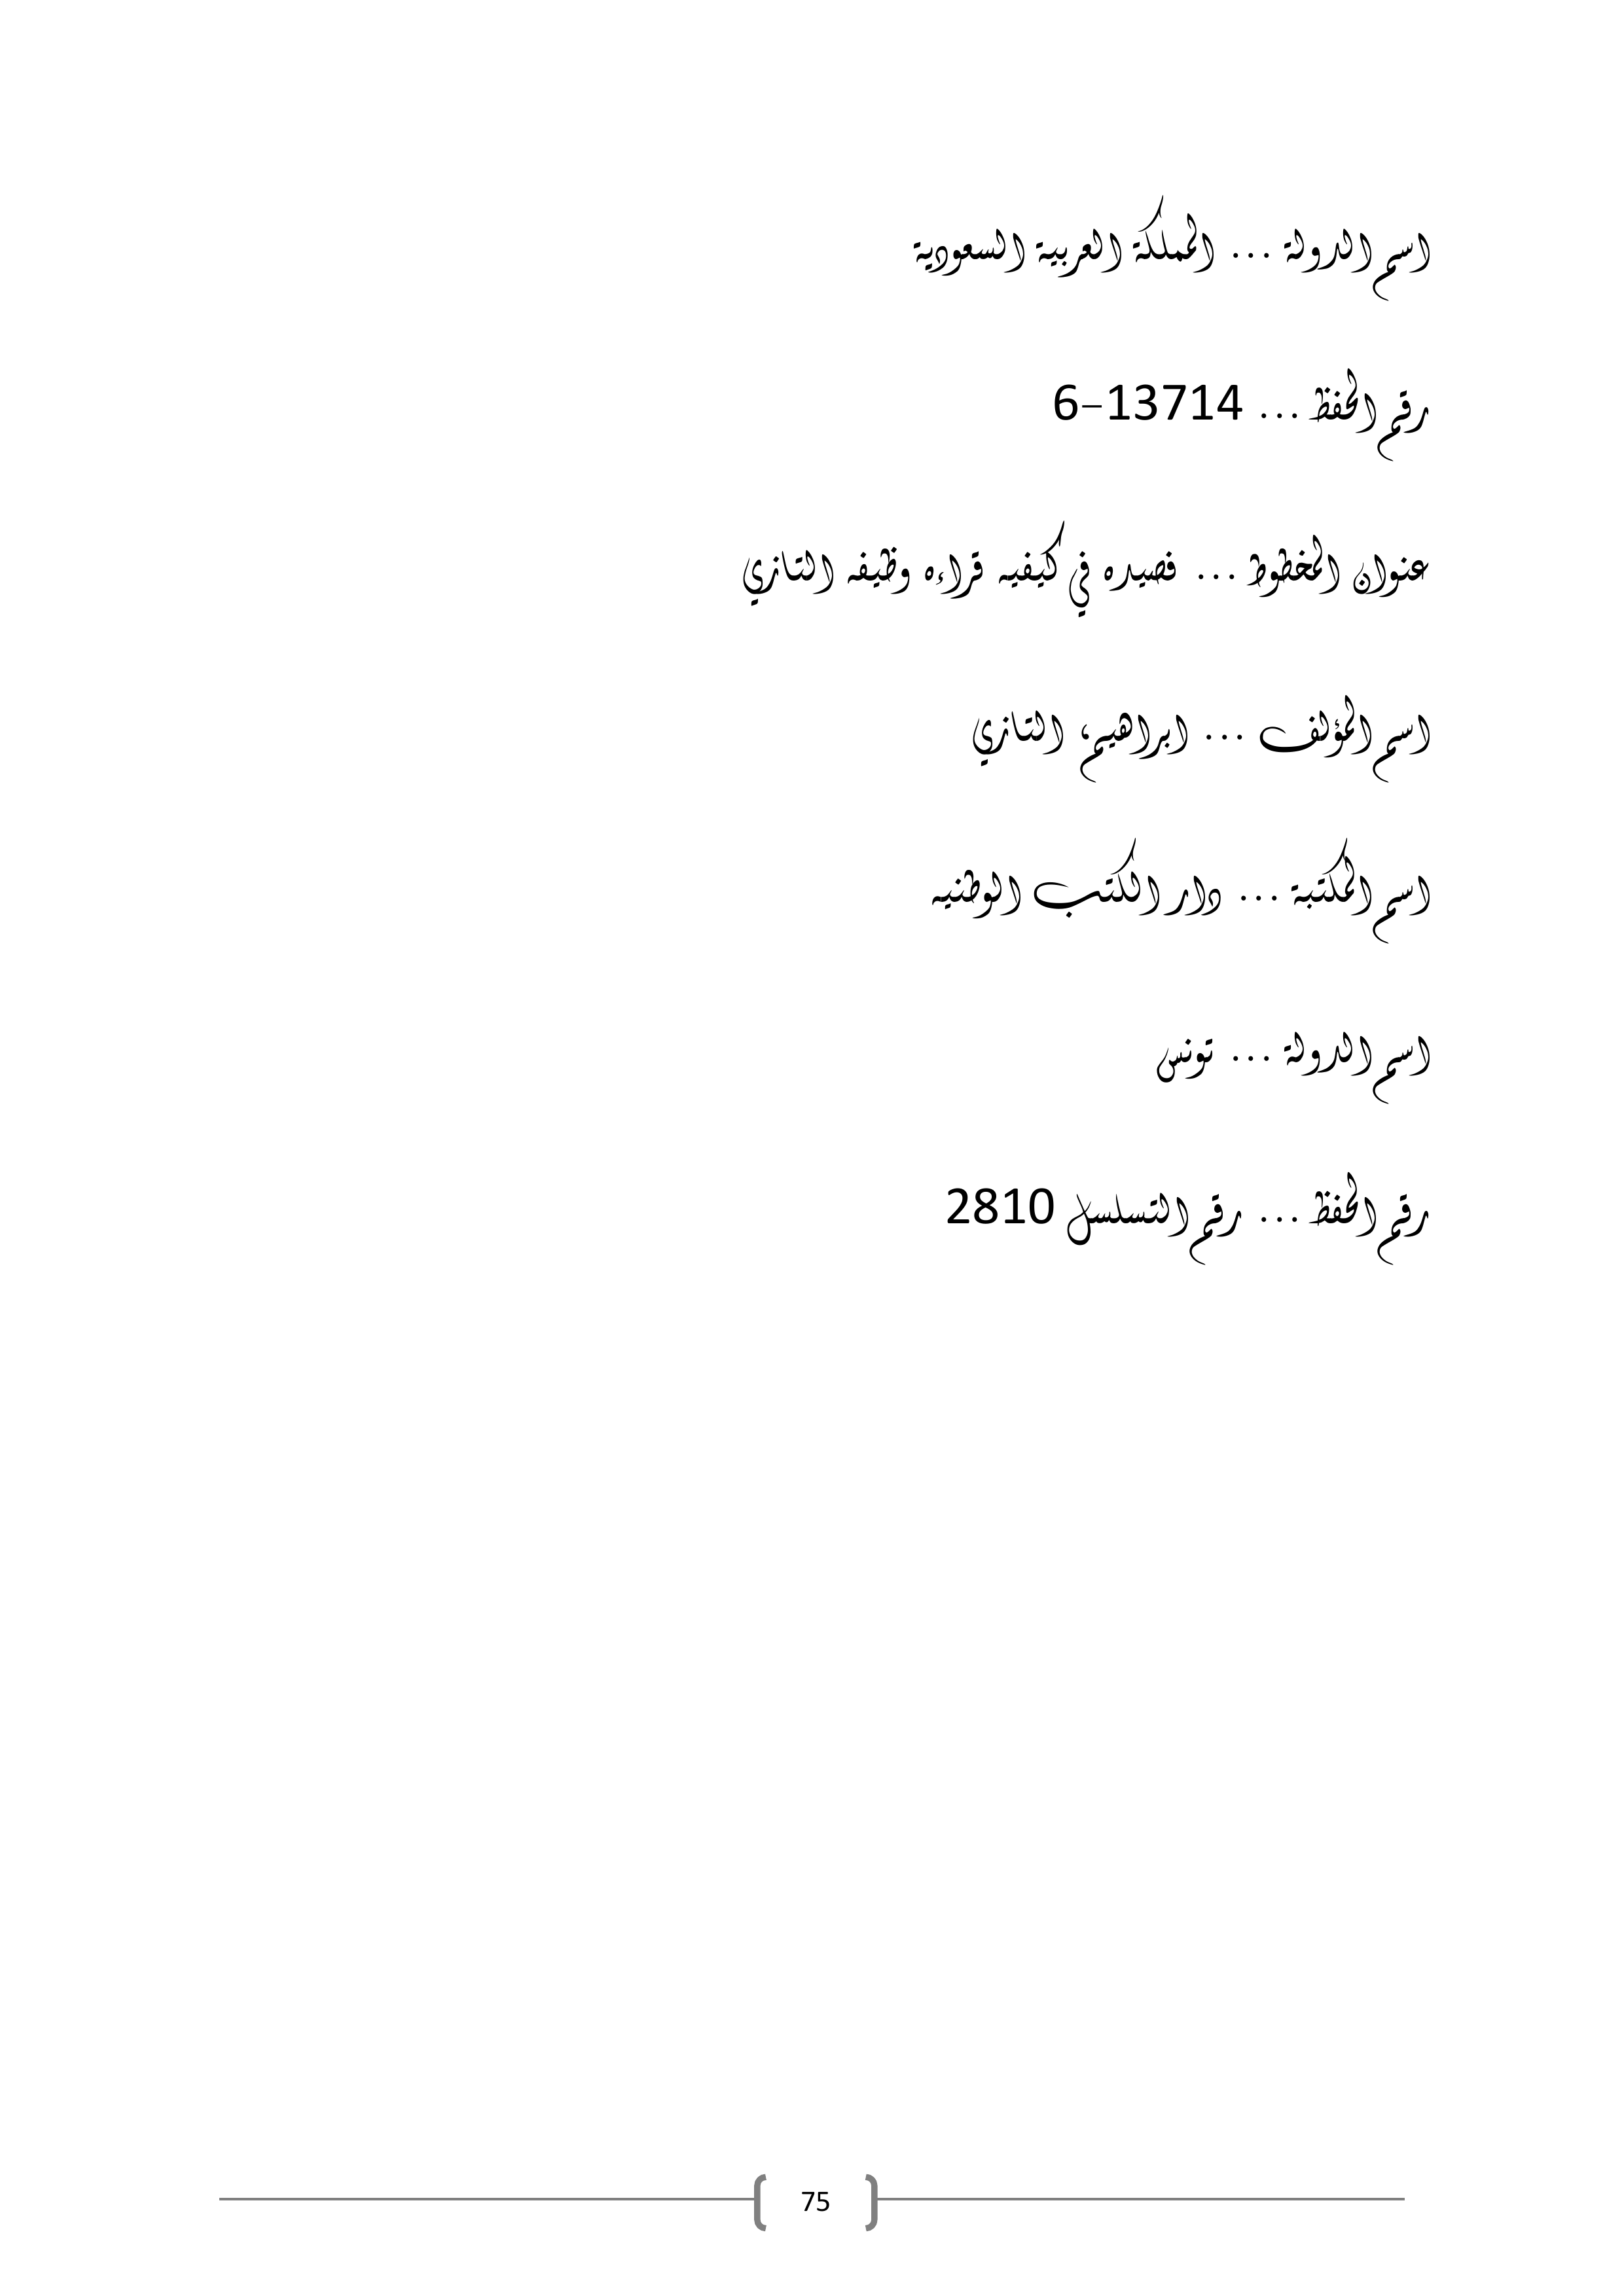 اسم الدولة ... المملكة العربية السعودية
رقم الحفظ ... 13714-6
عنوان المخطوط ... قصيده في كيفيه قراءه وظيفه التازي
اسم المؤلف ... ابراهيم، التازي
اسم المكتبة ... دار الكتب الوطنيه
اسم الدولة ... تونس
رقم الحفظ ... رقم التسلسل 2810
75